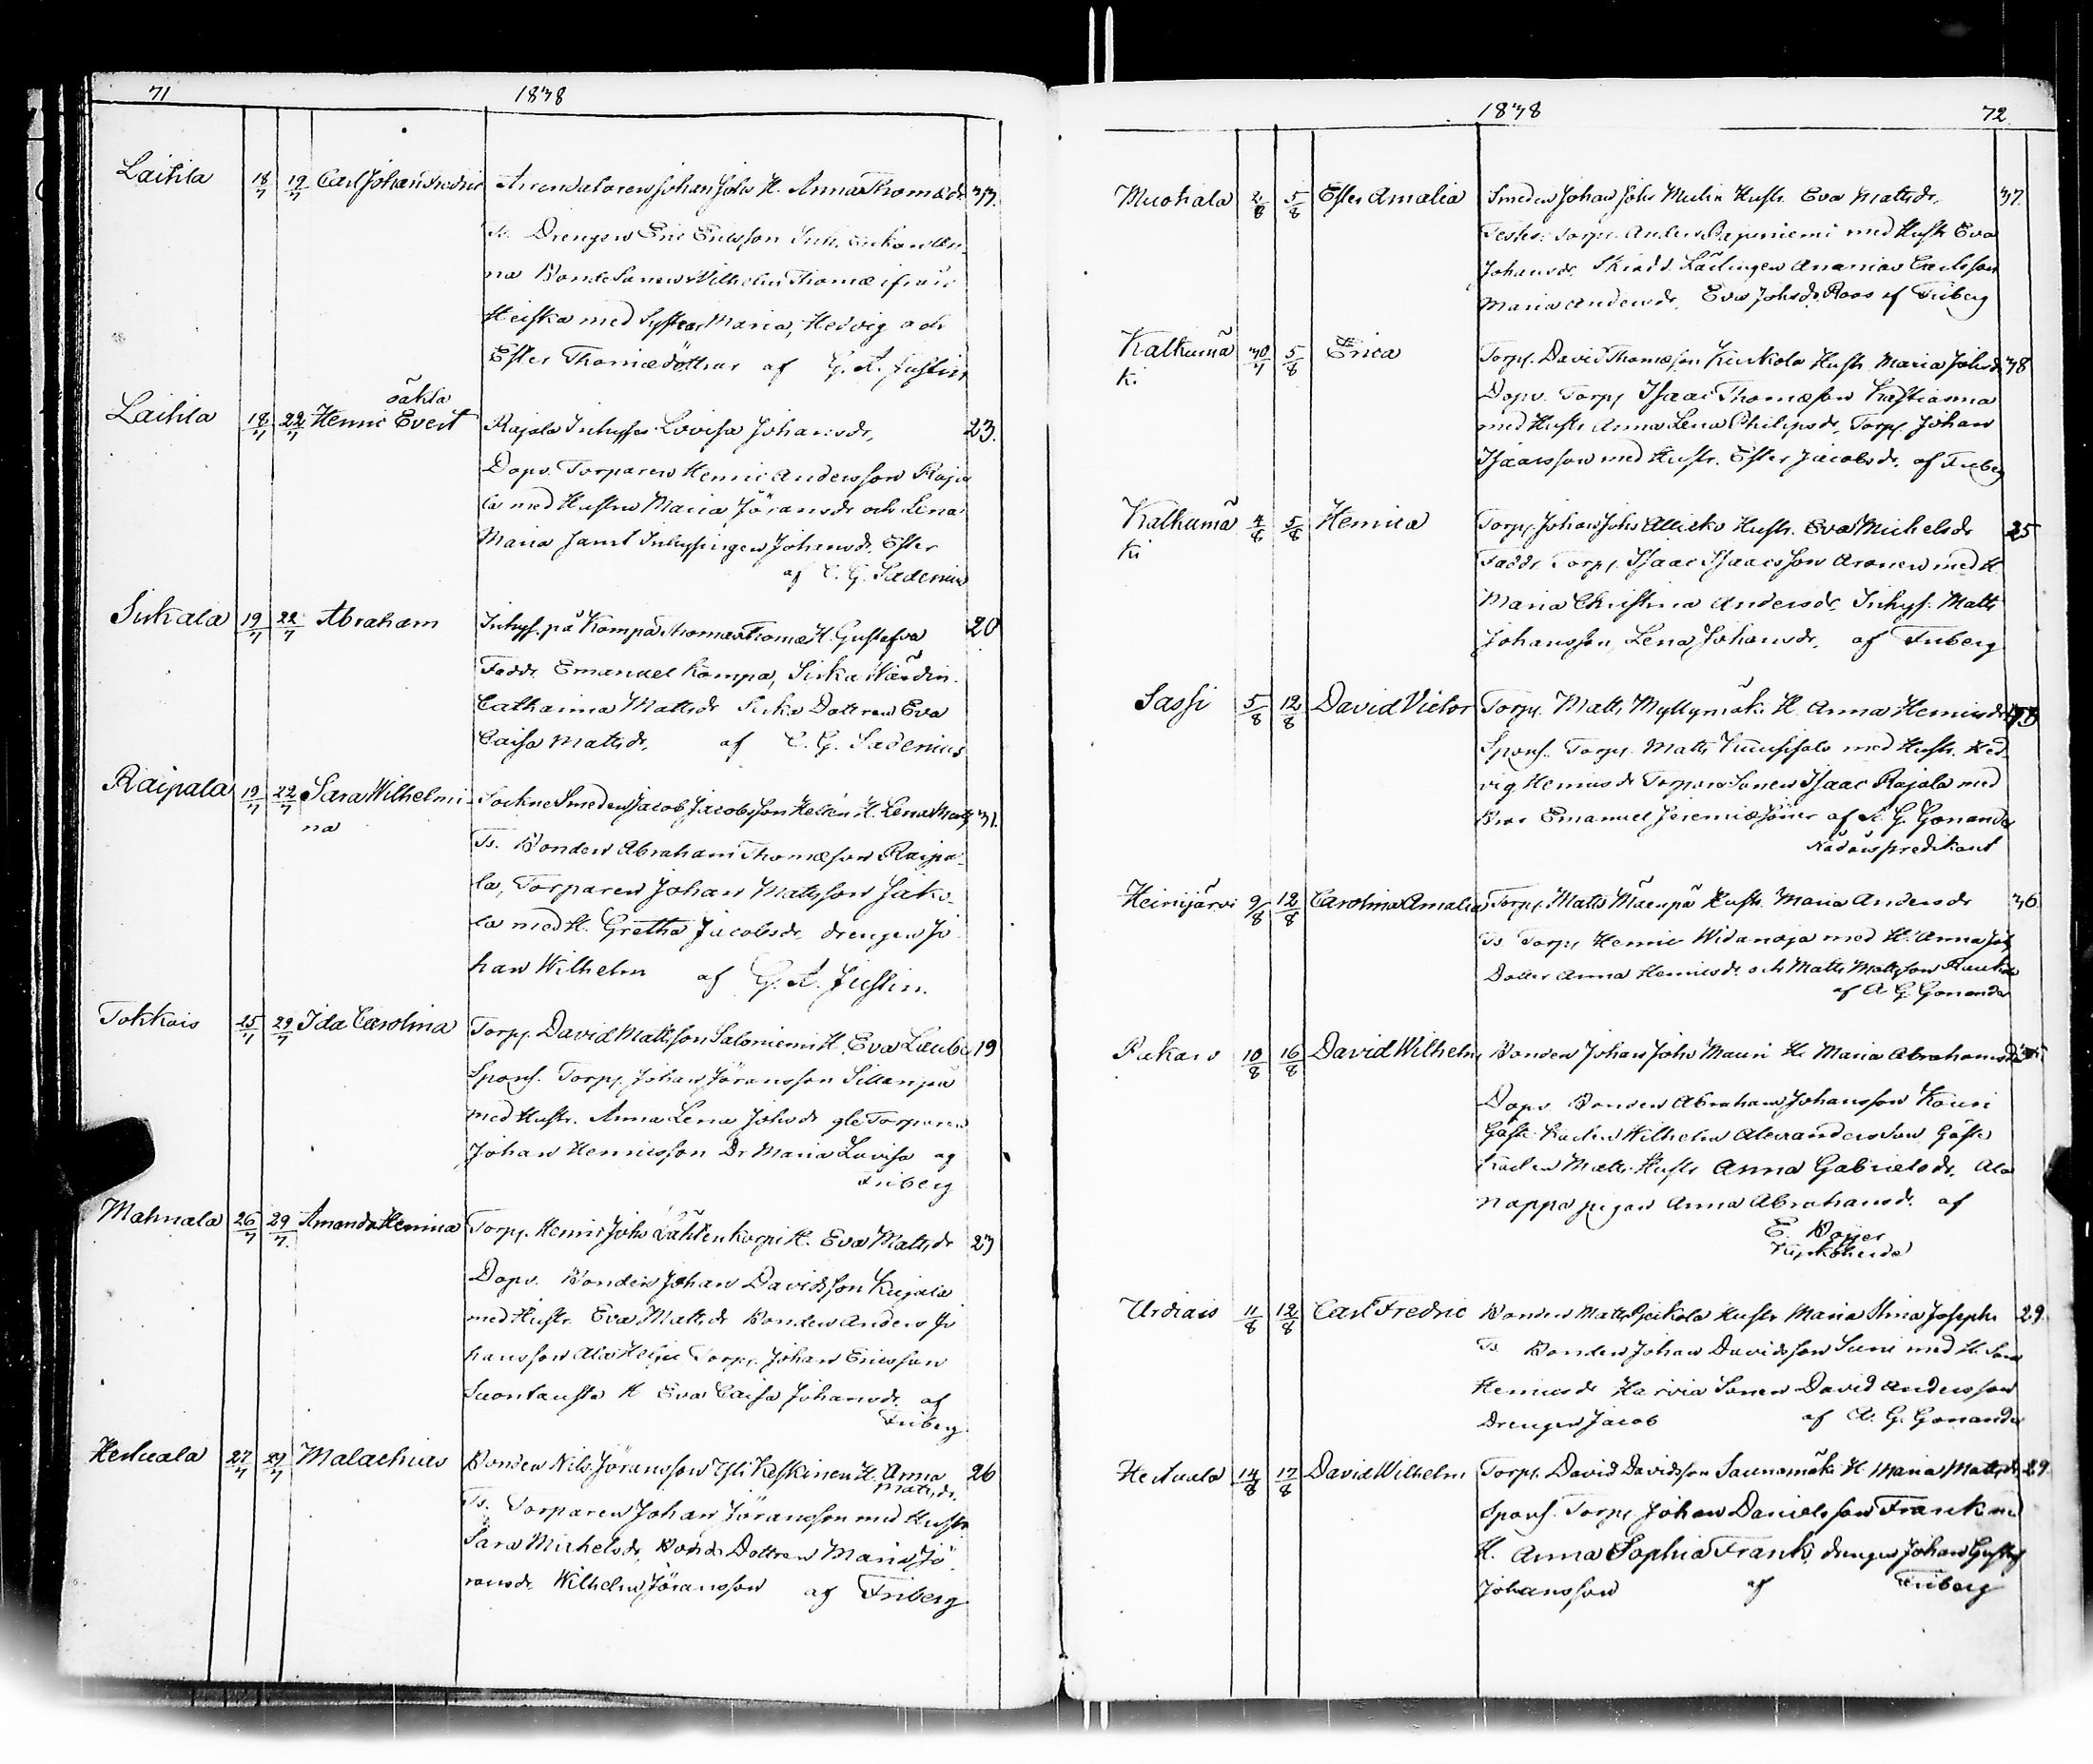 71 1838
Laihla 18/7 19/7 Carl Johan Fredric Arrendatoren Johan Johs H. Anna Thomædr 33.
Ts. Drengen Eric Ericsson Inh. Enkan
na Bonde Sonen Wilhelm Thomæ ifrån
Heiska med Systrar Maria, Hedvig och
Ester Thomædöttrar af G. A. Justin
oäkta
Laihla 18/7 22/7 Henric Evert Rajala Inhyses Lovisa Johansdr, 23.
Dopv. Torparen Henric Andersson Raja
la med Hustru Maria Jöransdr och Lena
Maria samt Inhysingen Johansdr. Ester
af C. G. Sadenius
Sirkala 19/7 22/7 Abraham Inhys. på Kompa Thomas Thomæ H. Gustafva 20
Fadd. Emanuel Kompa, Sirka Värdin.
Catharina Mattsdr Sirka Dottren Eva
Caisa Mattsdr, af C. G. Sadenius
Raipala 19/7 22/7 Sara Wilhelmi- Sockne Smeden Jacob Jacobsson Hellén H. Lena 31.
na
Ts. Bonden Abraham Thomæson Raipa-
la, Torparen Johan Mattsson Jako-
la med H. Gretha Jacobsdr, drengen Jo
han Wilhelm af G. A. Justin.
Tokkois 25/7 29/7 Ida Carolina Torp. David Mattsson Saloniemi H. Eva 19
Spons. Torp. Johan Jöransson Sillanpä
med Hustr. Anna Lena Johsdr gle Torparen
Johan Henricsson Dr Maria Lovisa af
Friberg
Mahnala 26/7 29/7 Amanda Henrica Torp. Henric Johs Lähtenkorpi H. Eva Mattsdr 23
Dopv. Bonden Johan Davidsson Kujala
med Hustr. Eva Mattsdr Bonden Anders Jo
hansson Ala Heiju Torp. Johan Ericsson
Suontausta H Eva Caisa Johansdr. af
Friberg
Hertuala 27/7 29/7 Malachias Bonden Nils Jöransson Yli Keskinen H. Anna 26
Mattsdr.
Ts. Torparen Johan Jöransson med Hustr.
Sara Michelsdr, Bonde Dottren Maria Jö-
ransdr. Wilhelm Jöransson af Friberg
1838 72
Muotiala 2/8 5/8 Ester Amalia Smeden Johan Johs Hustr. Eva Mattsdr. 37.
Testes. Torp. Anders Papuniemi med Hustr Eva
Johansdr. Skrädd. Lärlingen Ananias Carlsson
Maria Andersdr. Eva Johsdr Roos af Friberg
Kalkumä 30/7 5/8 Erica Torp. David Thomæson Kurkola Hustr Maria Johsdr 38
ki
Dopv. Torp. Isaac Thomæson
med Hustr Anna Lena Philipsdr, Torp. Johan
Isaacsson med Hustr. Ester Jacobsdr. af Friberg
Kalkumä 4/8 5/8 Henrica Torp. Johan Johs Hustr. Eva Michelsdr 25
ki
Fadd. Torp. Isaac Isaacsson Aronen med H.
Maria Christina Andersdr, Inhys. Matts
Johansson, Lena Johansdr. af Friberg
Sassi 5/8 12/8 David Victor Torp. Matts Myllymäki H. Anna Henricsdr
Spons. Torp. Matts med Hustr. Hed
vig Henricsdr Torpare Sonen Isaac Rajala med
Bror Emanuel Jeremiæsöner af A. G. Gonander
Nådårspredikant
Heinijärvi 9/8 12/8 Carolina Amalia Torp. Matts Mäenpä Hustr. Maria Andersdr 36
Ts Torp. Henric Widanoja med H. Anna Joh
Dotter Anna Henricsdr. och Matts Mattsson
af A G. Gonander
Pukara 10/8 16/8 David Wilhelm Bonden Johan Johs Mauri H. Maria Abrahamsdr
Dopv. Bonden Abraham Johansson Kouri
Wilhelm Alexandersson
Matts Hustr Anna Gabrielsdr, Ala
Nappa pigan Anna Abrahamsdr. af
E. Boijer
Kyrkoherde
Urdiais 11/8 12/8 Carl Fredric Bonden Matts Hustr Maria Stina Josephs 29.
Ts Bonden Johan Davidsson Suni med H Sara
Henricsdr Harvia Sonen David Andersson
Drengen Jacob af A. G. Gonander
Hertuala 14/8 17/8 David Wilhelm Torp. David Davidsson Saunamäki H Maria Mattsdr 29.
Spons. Torp. Johan Danielsson Frank med
H. Anna Sophia Frank, drengen Johan Gustaf
Johansson af Friberg